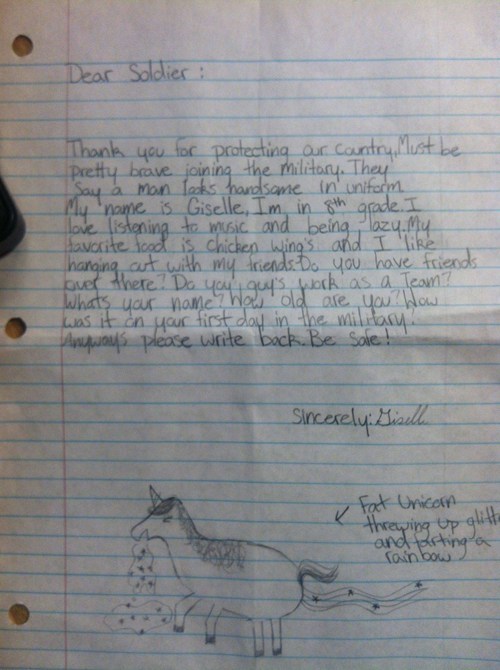 Dear Soldier :
Thank you for protecting our country, Must be
pretty brave joining the military. They
Say a man looks handsome in uniform
My name is Giselle, Im in 8th grade. I
love listening to music and being lazy. My
favorite food is chicken wing's and I like
hanging out with my friends. Do you have friends
over there? Do you guy's work as a Team?
Whats your name? How old are you? How
was it on your first day in the military?
Anyway's please write back. Be safe!
Sincerely: Gisell
Fat Unicorn
threwing up glitt
and farting a
rainbow